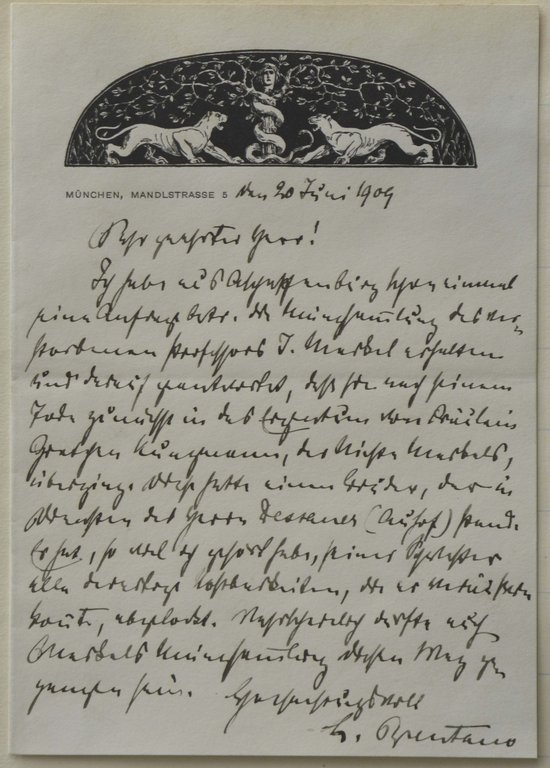 MÜNCHEN, MANDLSTRASSE 5 den 20 Juni 1909
Sehr geehrter Herr!
Ich habe aus Aschaffenburg schon einmal
eine Anfrage betr. der Münzsammlung des ver-
storbenen Professors J. Merkel erhalten
und darauf geantwortet, daß sie nach seinem
Tode zunächst in das Eigentum von Fräulein
Gretchen Kungmann, der Nichte Merkels,
überging. Diese hatte einen Bruder, der in
Diensten des Herrn Dessauer (Auhof) stand.
Er hat, so viel ich gehört habe, seiner Schwester
alle derartige Kostbarkeiten, die er veräussern
konnte, abgelockt. Wahrscheinlich dürfte auch
Merkels Münzsammlung diesen Weg ge-
gangen sein.
Hochachtungsvoll
L. Brentano